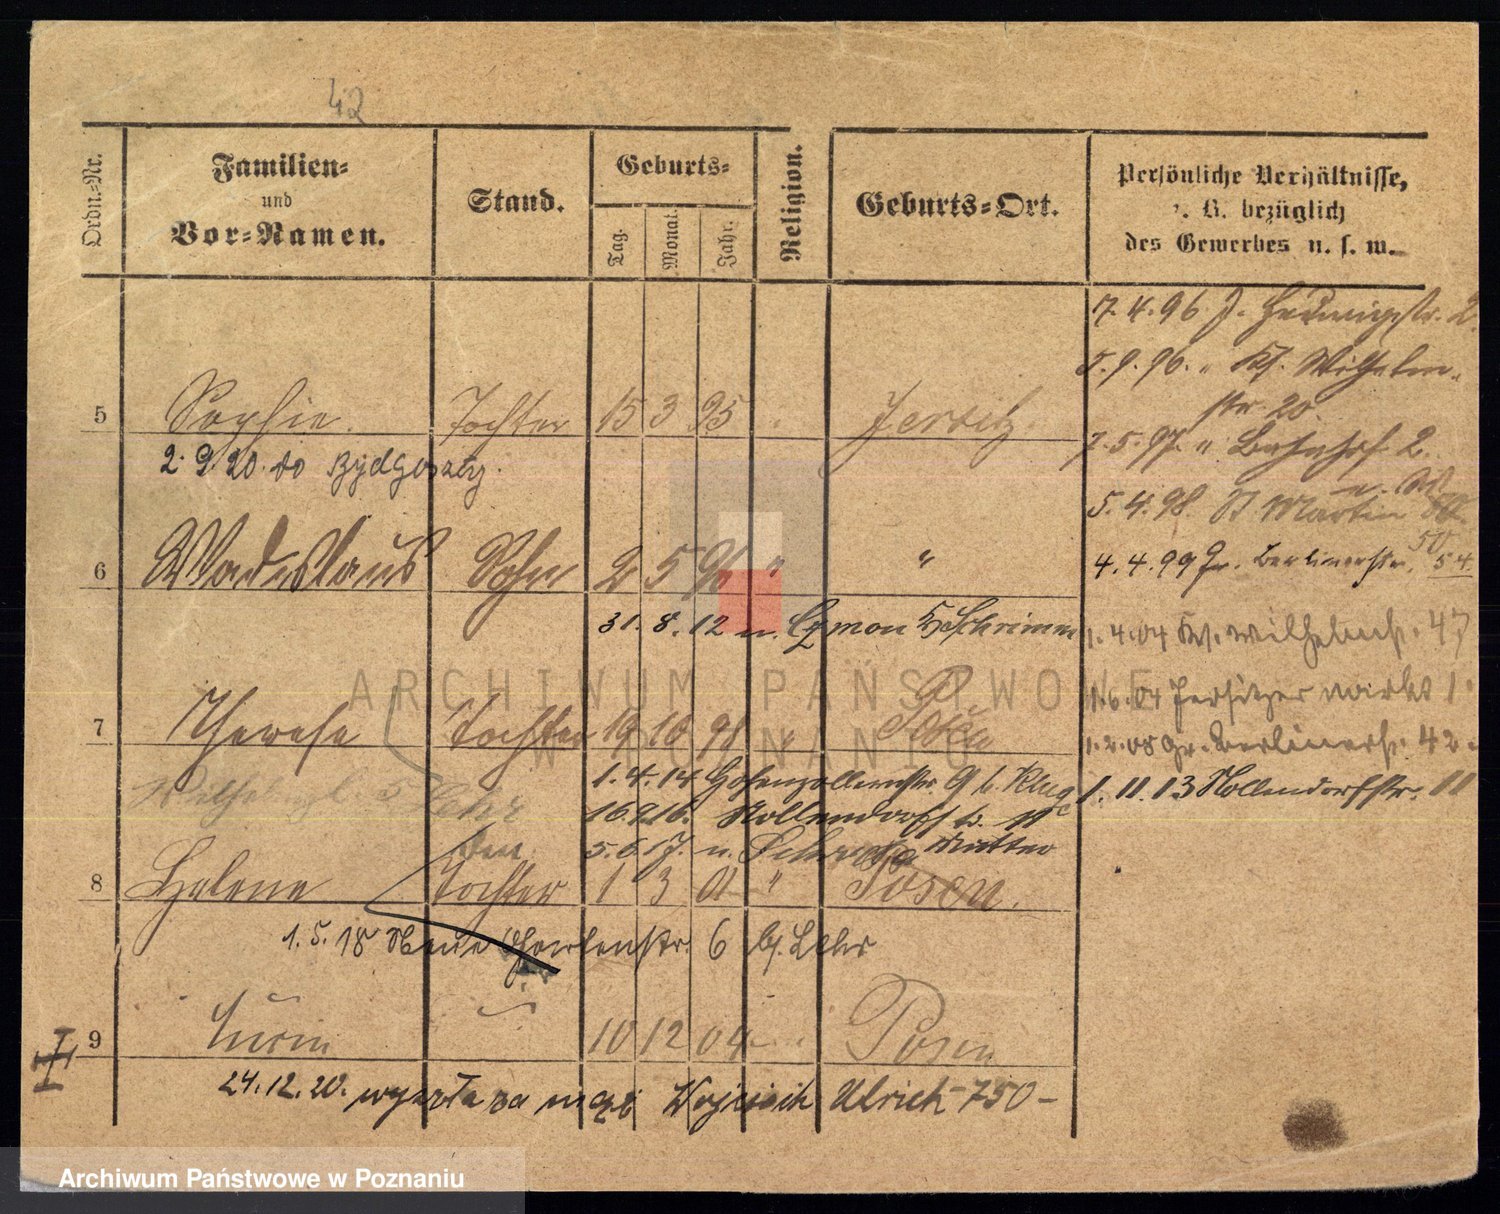 42
Ordn.=Nr.
Familien=
und
Vor=Namen.
Stand.
Geburts=
Tag.
Monat.
Jahr.
Religion.
Geburts=Ort.
Persönliche Verhältnisse,
z. B. bezüglich
des Gewerbes u. s. w.
7.4.96 J. Hedwigstr. 2.
5.9.96. " Kl. Wilhelm-
str. 20.
5 Sophie. Tochter 15 3 95 Jersitz
7.5.97. " Bahnhof 2.
2.9.20. do Bydgoszczy.
5.4.98. St Martin
6 Wladislaus Sohn 2 5 96 " "
4.4.99 Gr. Berlinerstr. 54.
31. 8. 12 n. Schrimm
1.4.04 Kl. Wilhelmstr. 47
1.6.04 Jersitzer markt 1
7 Therese Tochter 19 10 98 " Posen
1.2.08 Gr. Berlinerstr. 42.
1.4.14 Hohenzollernstr. 9 b. Klug
1.11.13 Nollendorfstr. 11
16.9.16. Nollendorfstr. 11
5.6.17. n. Mutter
8 Helene Tochter 1 3 01 " Posen.
1.5.18 Neue Gartenstr. 6 bei Lehr
9 10 12 04 Posen
24.12.20. wyszła za mąż Wojciech Ulrich - 750 -
ARCHIWUM PAŃSTWOWE
W POZNANIU
Archiwum Państwowe w Poznaniu